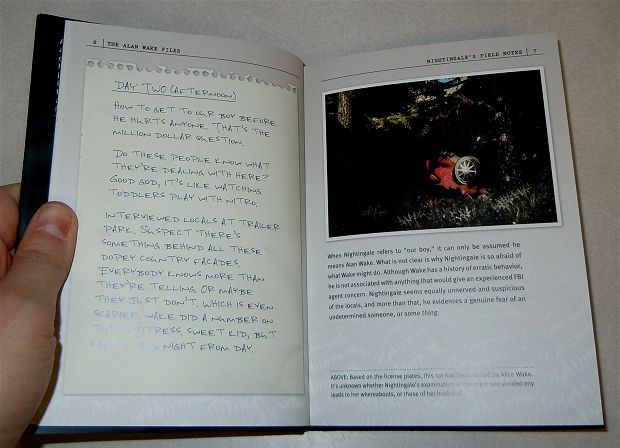 6 | THE ALAN WAKE FILES
DAY TWO (AFTERNOON)
HOW TO GET TO OUR BOY BEFORE
HE HURTS ANYONE. THAT'S THE
MILLION DOLLAR QUESTION.
DO THESE PEOPLE KNOW WHAT
THEY'RE DEALING WITH HERE?
GOOD GOD, IT'S LIKE WATCHING
TODDLERS PLAY WITH NITRO.
INTERVIEWED LOCALS AT TRAILER
PARK. SUSPECT THERE'S
SOMETHING BEHIND ALL THESE
DOPEY COUNTRY FACADES.
EVERYBODY KNOWS MORE THAN
THEY'RE TELLING. OR MAYBE
THEY JUST DON'T. WHICH IS EVEN
SCARIER. WAKE DID A NUMBER ON
THAT WAITRESS. SWEET KID, BUT
NIGHT FROM DAY.
NIGHTINGALE'S FIELD NOTES | 7
When Nightingale refers to "our boy," it can only be assumed he
means Alan Wake. What is not clear is why Nightingale is so afraid of
what Wake might do. Although Wake has a history of erratic behavior,
he is not associated with anything that would give an experienced FBI
agent concern. Nightingale seems equally unnerved and suspicious
of the locals, and more than that, he evidences a genuine fear of an
undetermined someone, or some thing.
ABOVE: Based on the license plates, this car had been rented by Alice Wake.
It's unknown whether Nightingale's examination of the car yielded any
leads to her whereabouts, or those of her husband.